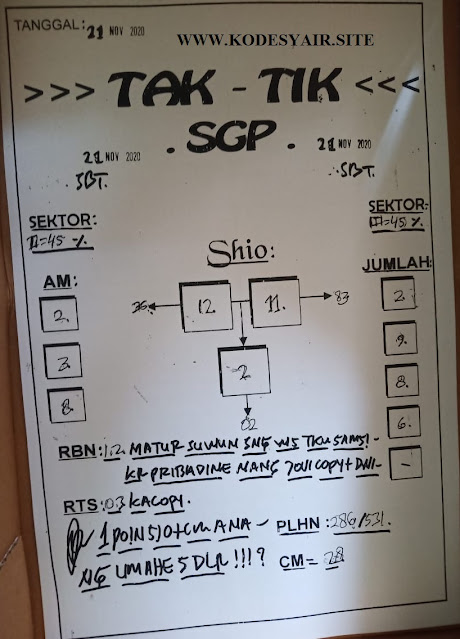 TANGGAL: 21 NOV 2020
WWW.KODESYAIR.SITE
>>> TAK - TIK <<<
. SGP .
21 NOV 2020
SBT.
21 NOV 2020
SBT.
SEKTOR:
II=45 %
SEKTOR:
III=45 %
Shio:
AM:
2.
3.
8.
12.
11.
83
2
02
JUMLAH:
2.
9.
8.
6.
-
RBN:12. MATUR SUWUN SNG WIS
KR PRIBADINE NANG COPY+
RTS:03 KACOPY.
1 POIN ANA -
PLHN :286/531.
NG UMAHE 5 DLR !!!?
CM= 28